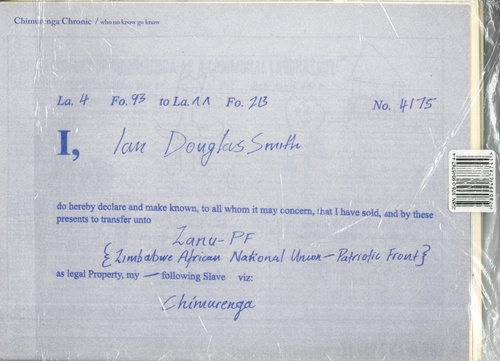 Chimurenga Chronic / who no know go know
La. 4 Fo. 93 to La. 11 Fo. 213 No. 4175
I, Ian Douglas Smith
do hereby declare and make known, to all whom it may concern, that I have sold, and by these
presents to transfer unto
Zanu-PF
{Zimbabwe African National Union - Patriotic Front}
as legal Property, my — following Slave viz:
Chimurenga